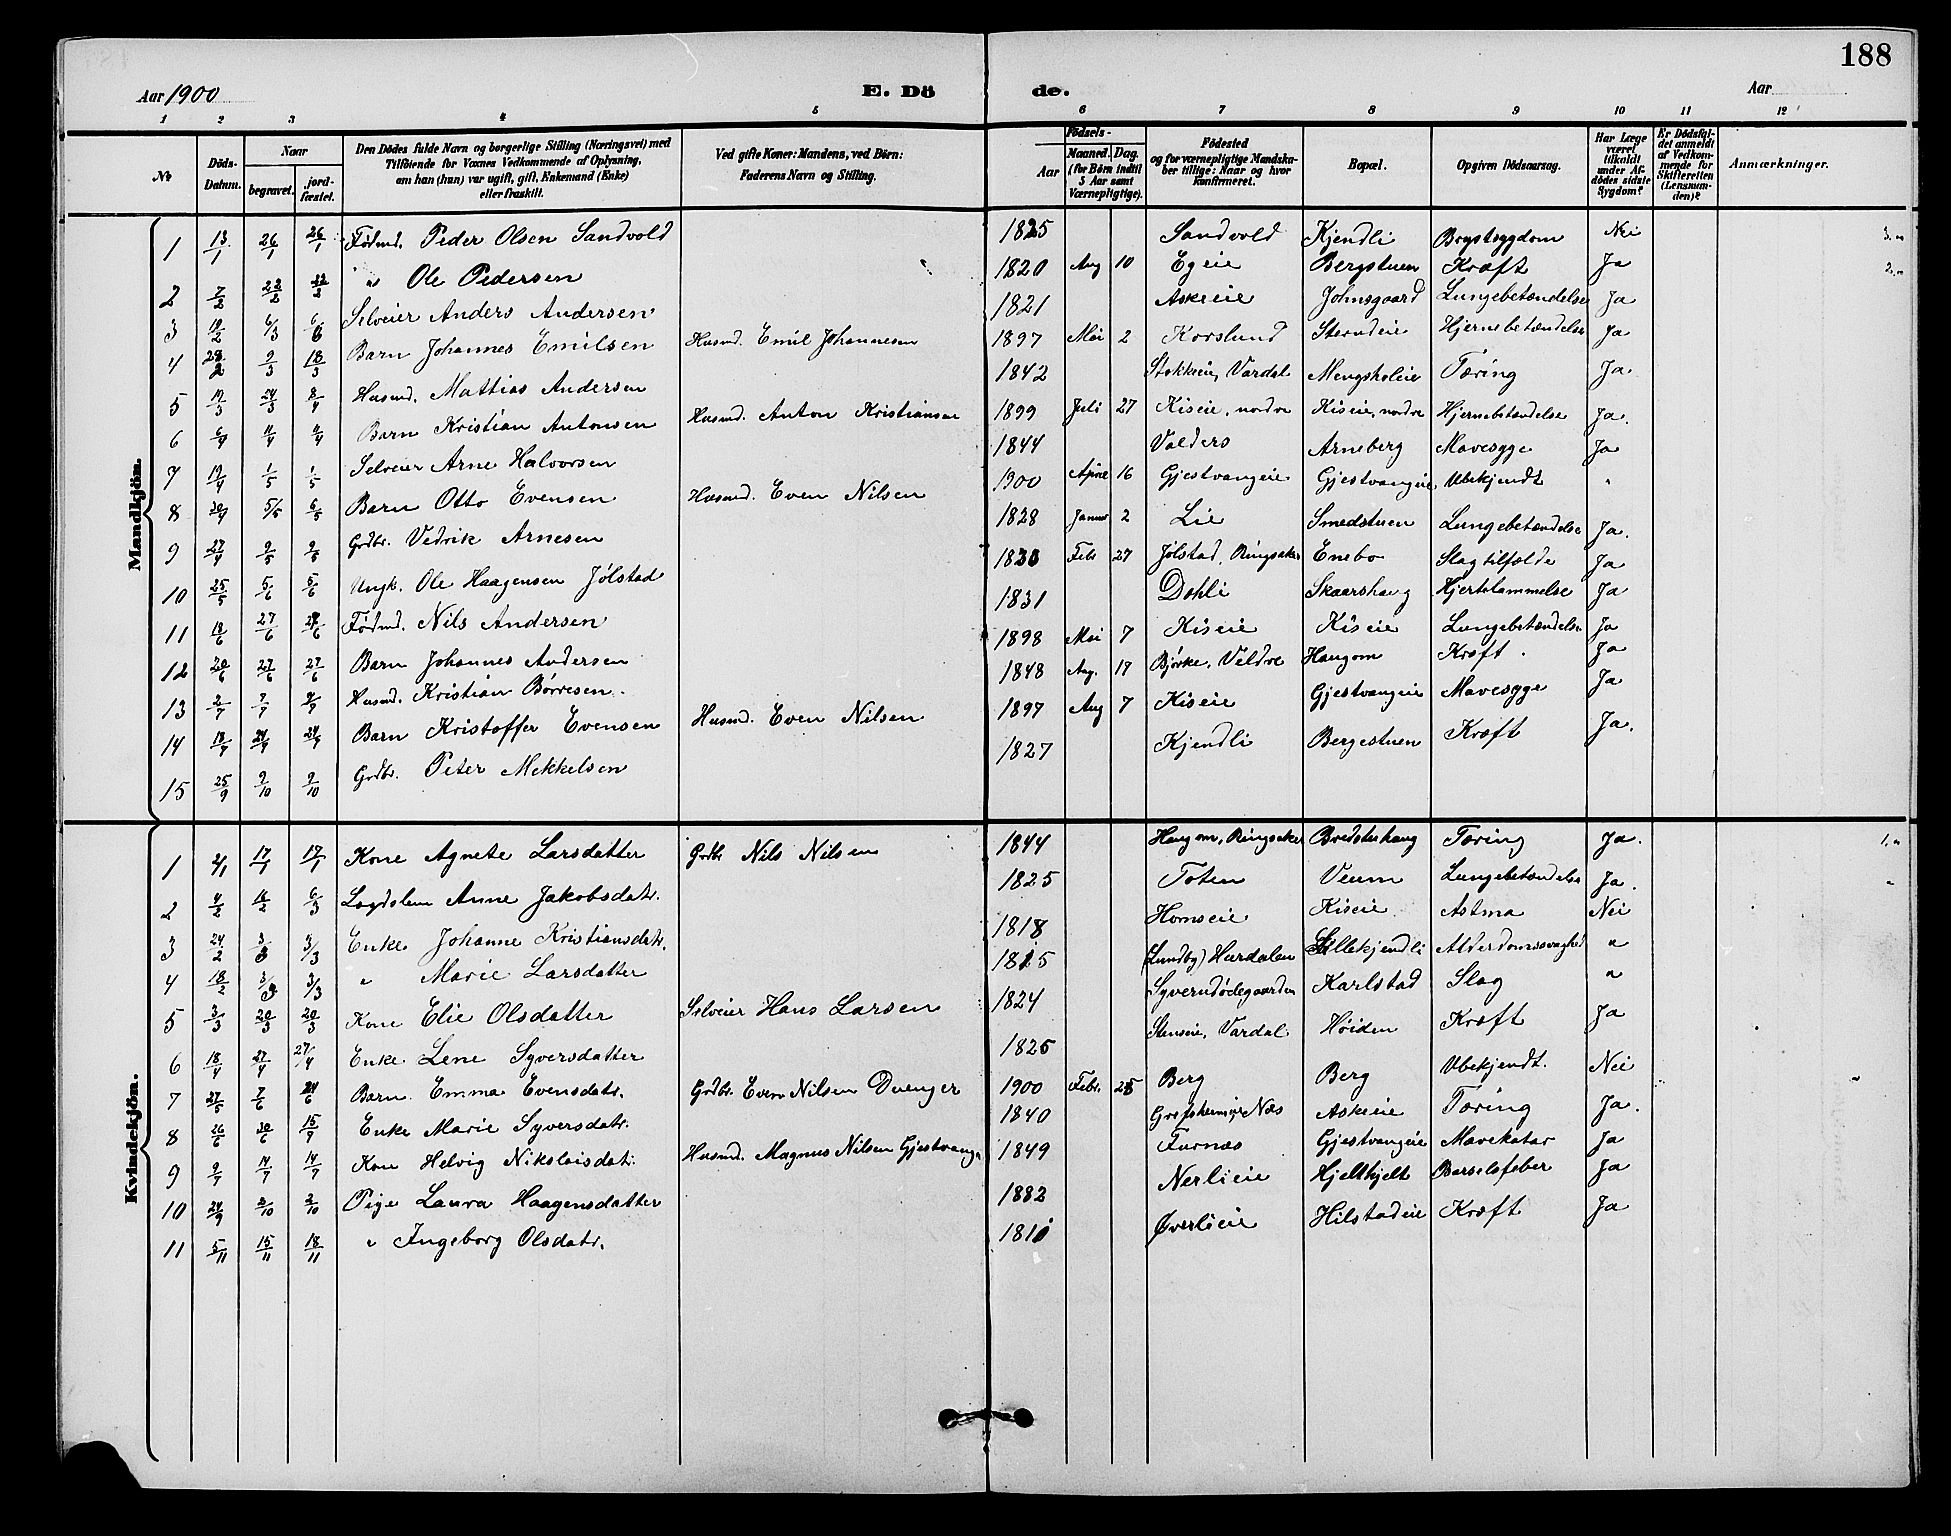 188
Aar 1900 E. Dö de. Aar
1 2 3 4 5 6 7 8 9 10 11 12
№ | Döds-Datum. | Naar begravet. | jord-fæstet. | Den Dödes fulde Navn og borgerlige Stilling (Næringsvei) med Tilföiende for Voxnes Vedkommende af Oplysning, om han (hun) var ugift, gift, Enkemand (Enke) eller fraskilt. | Ved gifte Koner: Mandens, ved Börn: Faderens Navn og Stilling. | Födsels- Aar | Maaned. Dag. (for Börn indtil 5 Aar samt Værnepligtige). | Födested og for værnepligtige Mandska-ber tillige: Naar og hvor konfirmeret. | Bopæl. | Opgiven Dödsaarsag. | Har Læge været tilkaldt under Af-dödes sidste Sygdom? | Er Dödsfal-det anmeldt af Vedkom-mende for Skifteretten (Lensman-den)? | Anmærkninger.
Mandkjön.
1 13/1 26/1 26/1 Födmd. Peder Olsen Sandvold 1825 Sandvold Kjendli Brystsygdom Nei
2 7/2 22/2 22/2 " Ole Pedersen 1820 Aug 10 Egeie Bergstuen Kræft Ja
3 19/2 6/3 6/3 Selveier Anders Andersen 1821 Askeeie Johnsgaard Lungebetændelse Ja
4 28/2 9/3 18/3 Barn Johannes Emilsen Husmd. Emil Johannesen 1897 Mai 2 Korslund Sterudeie Hjernebetændelse Ja
5 19/3 24/3 8/4 Husmd. Mattias Andersen 1842 Stokkeie, Vardal Mengsholeie Tæring Ja.
6 6/4 11/4 11/4 Barn Kristian Antonsen Husmd. Anton Kristiansen 1899 Juli 27 Kiseie, nordre Kiseie, nordre Hjernebetændelse Ja.
7 19/4 1/5 1/5 Selveier Arne Halvorsen 1844 Valders Arneberg Mavesyge Ja
8 30/4 5/5 6/5 Barn Otto Evensen Husmd. Even Nilsen 1900 April 16 Gjestvangeie Gjestvangeie Ubekjendt "
9 27/4 9/5 9/5 Grdbr. Vedrik Arnesen 1828 Januar 2 Lie Smedstuen Lungebetændelse Ja.
10 25/5 5/6 5/6 Ungk. Ole Haagensen Jølstad 1830 Febr 27 Jølstad, Ringsaker Enebo Slagtilfælde Ja
11 18/6 27/6 27/6 Födmd. Nils Andersen 1831 Dohli Skaarshaug Hjertelammelse Ja
12 20/6 27/6 27/6 Barn Johannes Andersen 1898 Mai 7 Kiseie Kiseie Lungebetændelse Ja
13 2/7 9/7 9/7 Husmd. Kristian Børresen. 1848 Aug. 17 Bjørke, Veldre Haugom Kræft. Ja
14 18/9 24/9 24/9 Barn Kristoffer Evensen Husmd. Even Nilsen 1897 Aug 7 Kiseie Gjestvangeie Mavesyge Ja
15 25/9 9/10 9/10 Grdbr. Peter Mekkelsen 1827 Kjendli Bergestuen Kræft Ja.
Kvindekjön.
1 2/1 17/1 17/1 Kone Agnete Larsdatter Grdbr Nils Nilsen 1844 Haugom, Ringsaker Bredstuhaug Tæring Ja.
2 4/2 16/2 6/3 Lægdslem Anne Jakobsdatr. 1825 Toten Veum Lungebetændelse Ja.
3 24/2 3/3 3/3 Enke Johanne Kristiansdatr. 1818 Homseie Kiseie Astma Nei
4 18/2 3/3 3/3 " Marie Larsdatter 1815 (Lundby) Hurdalen Lillekjendli Alderdomssvaghed "
5 3/3 20/3 20/3 Kone Elie Olsdatter Selveier Hans Larsen 1824 Syverudødegaarden Karlstad Slag "
6 18/4 27/4 27/4 Enke Lene Syversdatter 1825 Stenseie, Vardal Høiden Kræft Ja
7 27/5 7/6 24/6 Barn Emma Evensdatr. Grdbr. Even Nilsen Dvenger 1900 Febr. 25 Berg Berg Ubekjendt. Nei
8 26/6 30/6 15/9 Enke Marie Syversdatr. 1840 Grefsheimeie Næs Askeeie Tæring Ja.
9 9/7 14/7 14/7 Kone Helvig Nikolaisdatr. Husmd. Magnus Nilsen Gjestvang 1849 Furnæs Gjestvangeie Mavekatar Ja
10 24/9 2/10 2/10 Pige Laura Haagensdatter 1882 Nerlieie Hjeltkjelt Barselsfeber Ja
11 5/11 15/11 18/11 " Ingeborg Olsdatr. 1810 Øverlieie Hilstadeie Kræft Ja